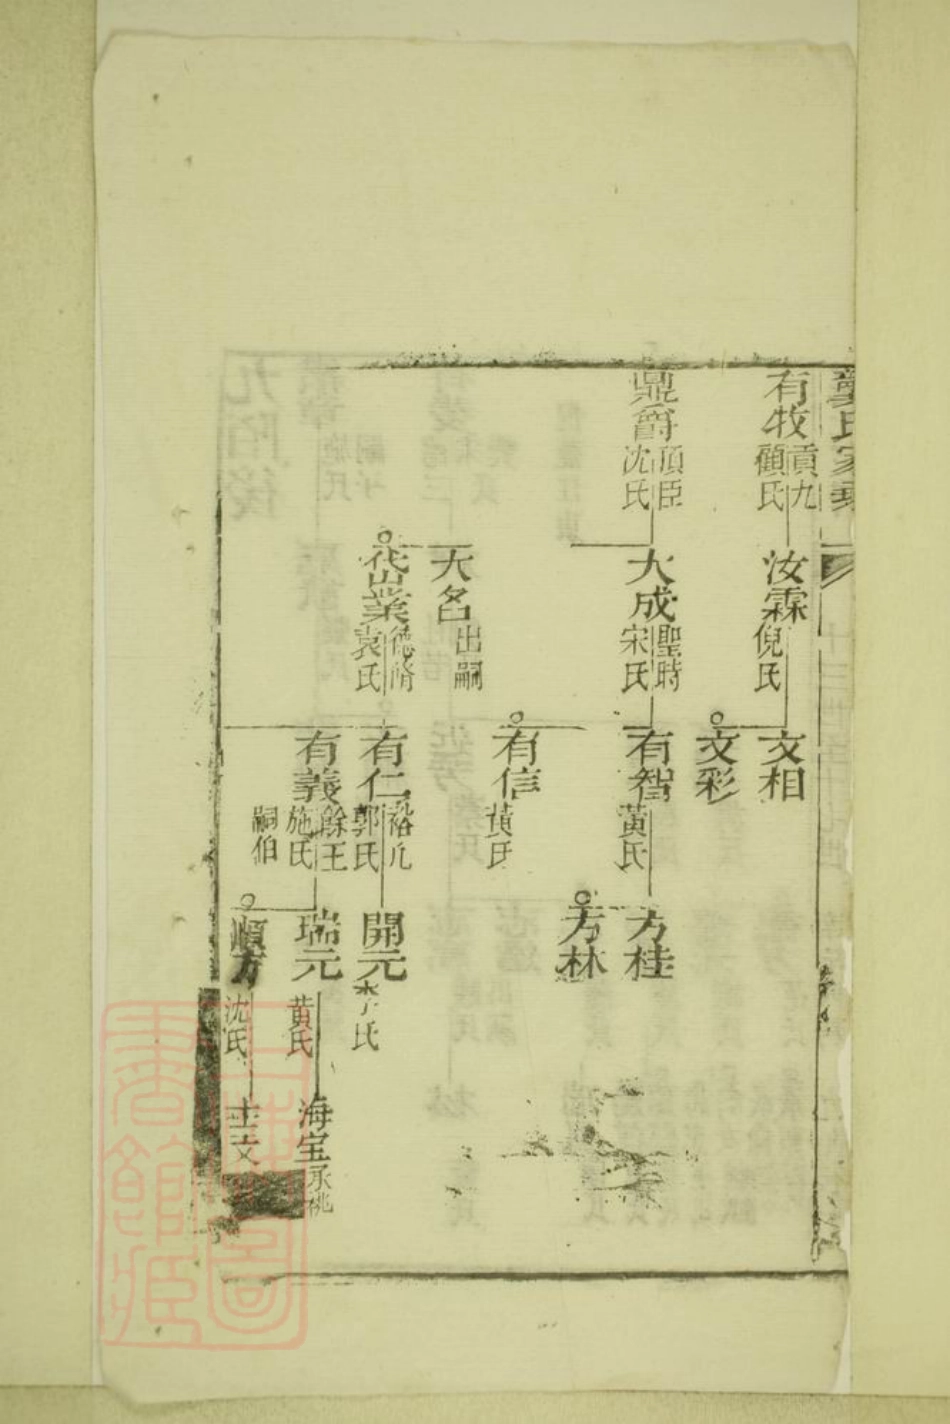 龔氏家乘
有牧
貢九
顧氏
汝霖
倪氏
文相
文彩
鼎爵
頂臣
沈氏
大成
聖時
宋氏
有智
黃氏
方桂
方林
有信
黃氏
大名
出嗣
岱業
德隋
袁氏
有仁
裕凡
郭氏
開元
李氏
有義
餘王
施氏
嗣伯
瑞元
黃氏
海宝
承祧
順方
沈氏
士文
上海圖書館藏